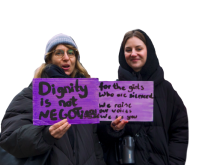 Dignity
is not
NEGOTIABLE
for the girls
who are silenced
we raise
our voices
We
you